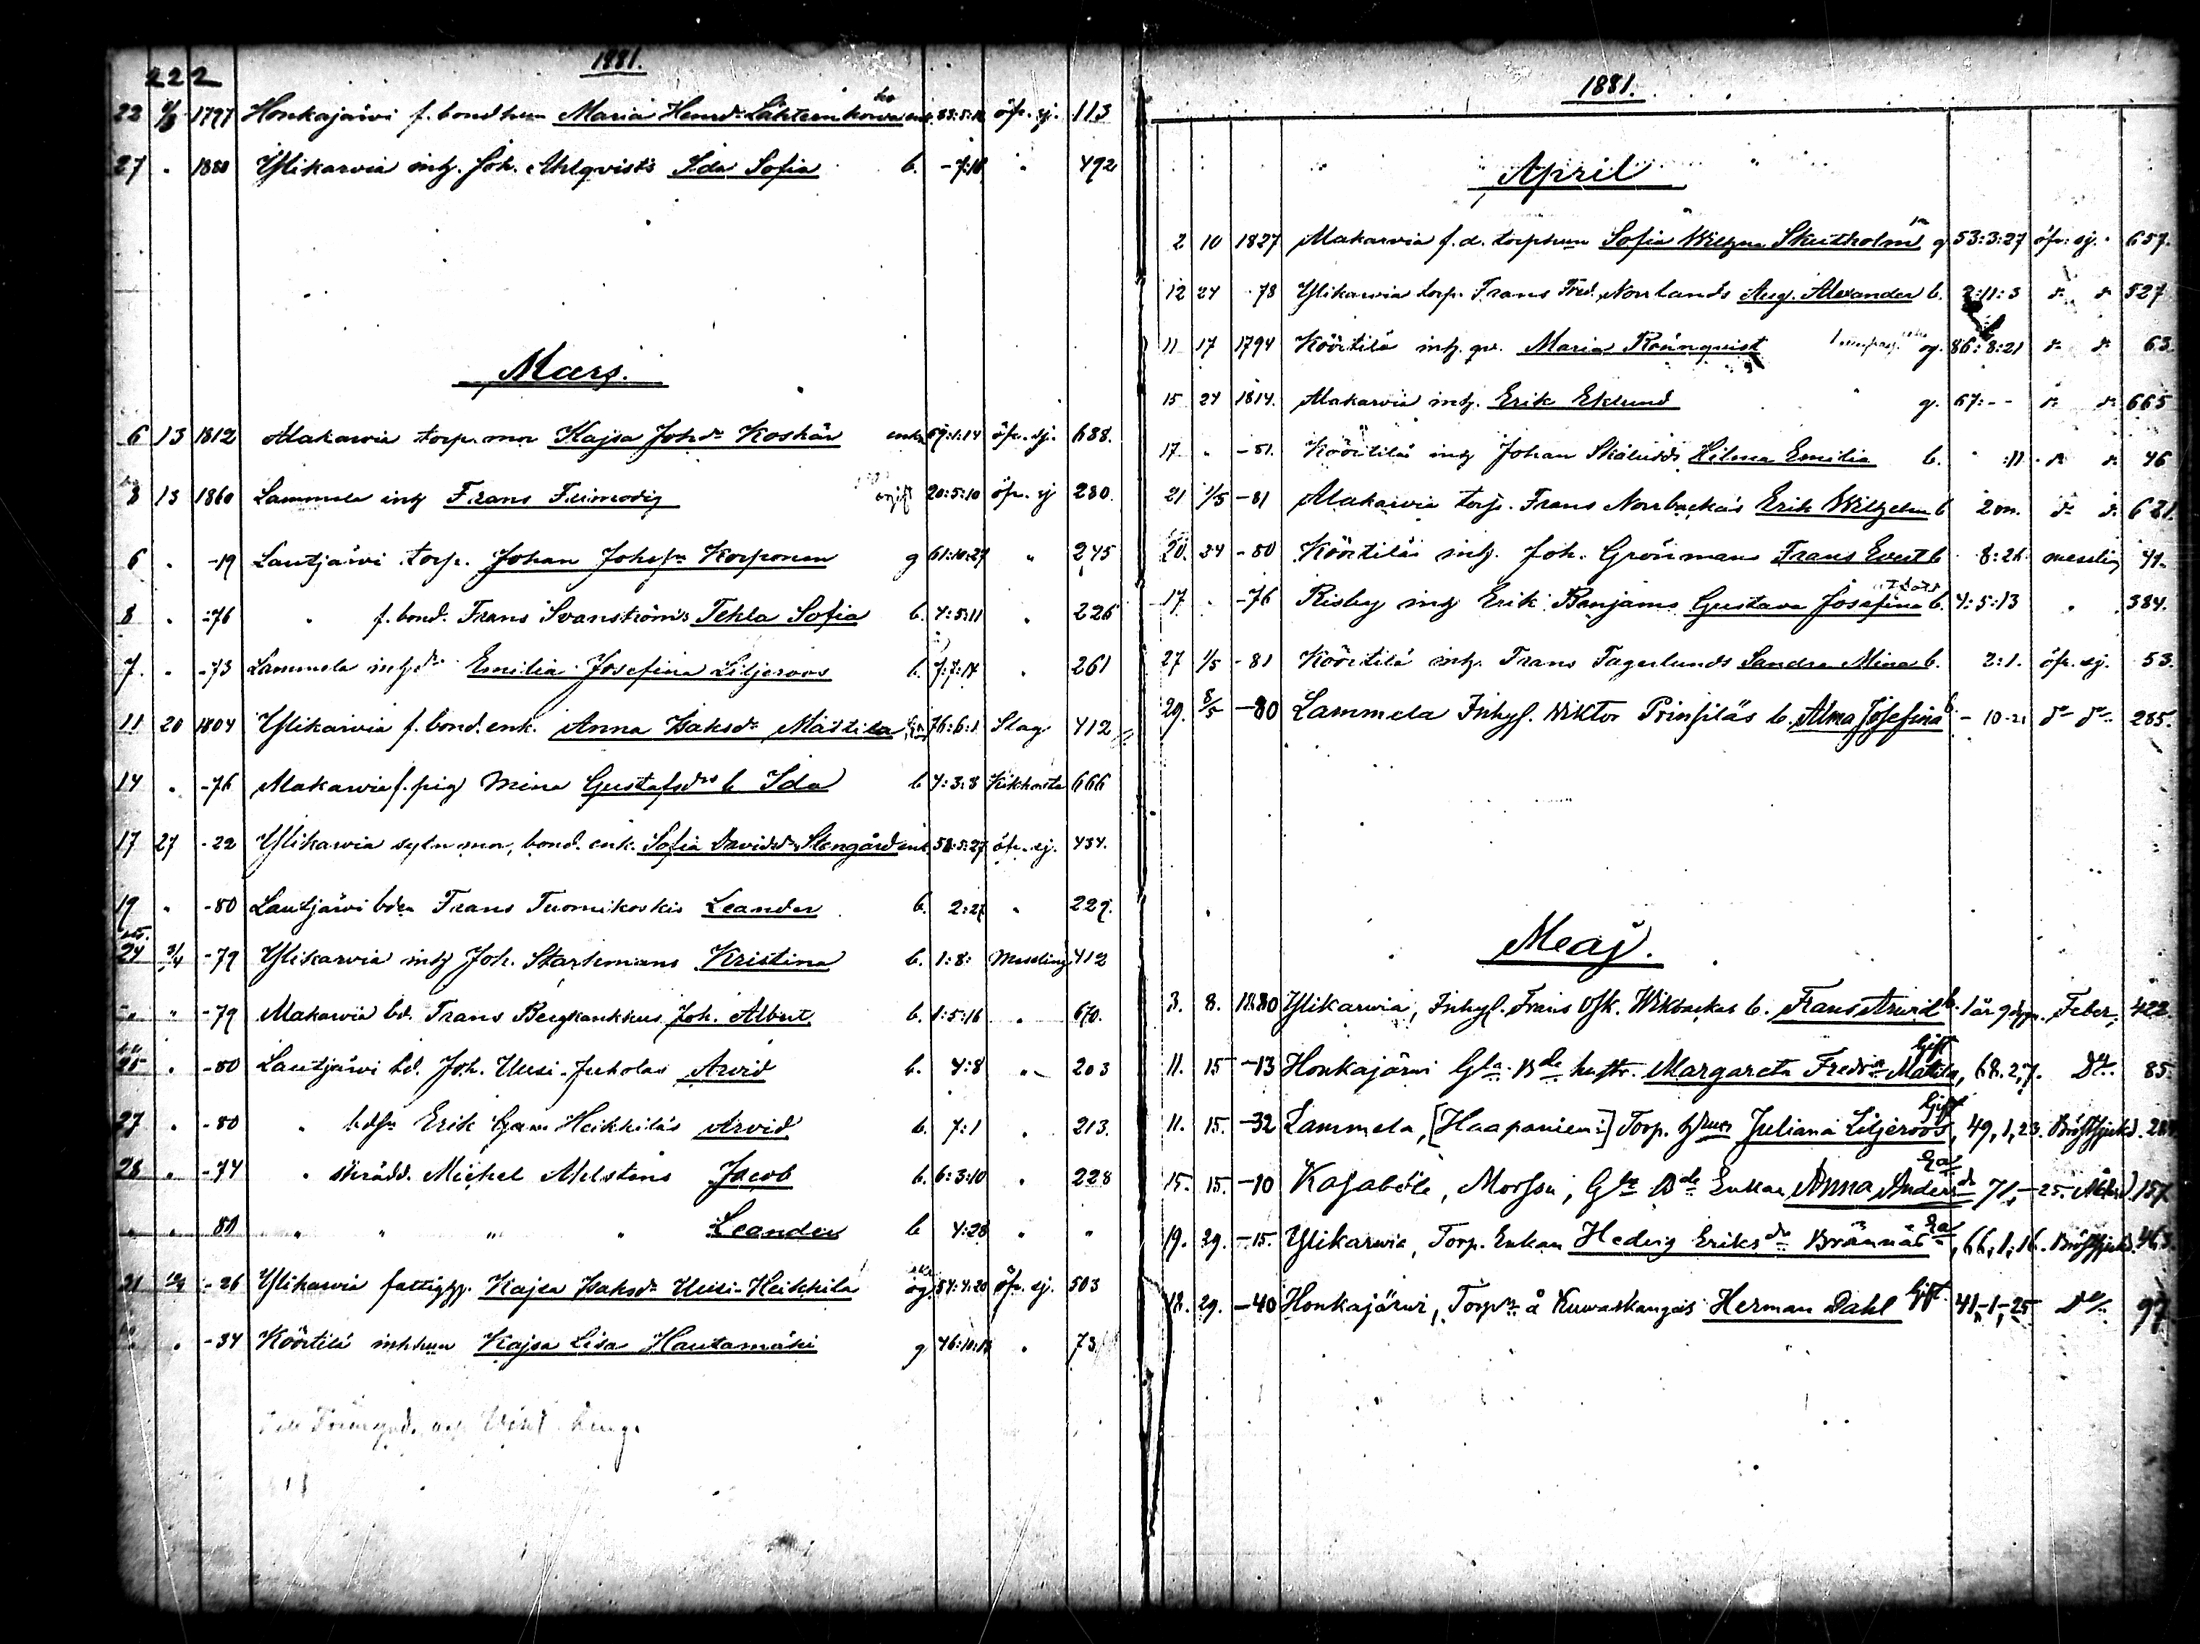 222
1881.
22 1797 Honkajärvi f. bondhun Maria Henrdr öfr. sj. 113
27 " 1880 Ylikarvia inhy. Joh. Ahlqvists Ida Sofia b. -7:18 " 492
Mars.
6 13 1812 Makarvia torp. mor Kajsa Johdr Koskär enka 69:1:14 öfr. sj. 688.
3 13 1860 Lammela inhy Frans Frimodig ogift 20:5:10 öfr. sj 280.
6 " -19 Lautjärvi torp. Johan Johsn Korponen g 61:10:27 " 245
8 " -76 " f. bond. Frans Svanströms Tekla Sofia b. 4:5:11 " 226
7. " -73 Lammela inhy dr Emilia Josefina Liljeroos b. 7:7:17 " 261
11 20 1804 Ylikarvia f. bond. enk. Anna Isaksdr Mattila Ea 76:6:1 Slag 412
14 " -76 Makarvia f. pig Mina Gustafsdrs b Ida b 4:3:8 Kikhosta 666
17 27 -22 Ylikarvia sytn mor, bond. enk. Sofia Davidsdr Stengård enk. 58:5:27 öfr. sj. 434.
19 " -80 Lautjärvi bden Frans Tuomikoskis Leander b. 2:27 " 229.
24 3/4 -79 Ylikarvia inhy Joh. Starkmans Kristina b. 1:8: Messling 412
" " -79 Makarvia bd. Frans Bergkankkus Joh. Albert b. 1:5:16 " 670.
25 " -80 Lautjärvi bd. Joh. Uusi-Juholas Arvid b. 4:8 " 203
27 " -80 " bdsn Erik Heikkiläs Arvid b. 7:1 " 213.
28 " -74 " skrädd. Michel Melstens Jacob b. 6:3:10 " 228
" " 80 " " " " Leander b 4:28 " "
31 10/4 -26 Ylikarvia fattighj. Kajsa Isaksdr Uusi-Heikkilä og. 54:4:20 öfr. sj. 503
" -34 Köörtilä inhhun Kajsa Lisa Hautamäki g 46:10:18 " 73
1881.
April
2 10 1827 Makarvia f. d. torphun Sofia Wilhna Skutholm g 53:3:27 öfr. sj. 657.
12 24 -78 Ylikarvia torp. Frans Fred. Norrlands Aug. Alexander b. 2:11:3 dr dr 527
11 17 1794 Köörtilä inhy. qv. Maria Rönnqvist og. 86:8:21 dr dr 63.
15 24 1814. Makarvia inhy. Erik Eklund g. 67:-- dr dr 665
17 " -81. Köörtilä inhy Johan Hilma Emilia b. :11 dr dr 46
21 1/5 -81 Makarvia torp. Frans Norrbackas Erik Wilhelm b 2 on. dr dr 621.
20. 24 -80 Köörtilä inhy. Joh. Grönmans Frans Evert b 8:26 messling 41.
17 " -76 Risby inhy Erik Benjams Gustava Josefina b. 4:5:13 " 384.
27 1/5 -81 Köörtilä inhy. Frans Fagerlunds Sandra Mina b. 2:1. öfr. sj. 53.
29. 8/5 -80 Lammela Inhys. Wiktor Prinsiläs b. Alma Josefina b. - 10-21 do do 285.
Maj.
3. 8. 1880 Ylikarvia, Inhys. Frans Osk. Wikbackas b. Frans Arvid b. 1 år 9 Feber, 422.
11. 15 -13 Honkajärvi Gla Bde hustr. Margareta Fredrdr Mattila, Gift 68.2,7. Do. 85.
11. 15. -32 Lammela, [Haapaniemi] Torp. hrun Juliana Liljeroos, Gift 49,1,23. Bröstsjukd.
15. 15. -10 Kasaböle, Gla Bde Enkan Anna Andersdr Ea 71,-25. 157.
19. 29. -15. Ylikarvia, Torp. Enkan Hedvig Eriksdr Brännäs Ea, 66,1,16. Bröstsjukd. 463.
18. 29. -40 Honkajärvi, Torpn å Kuwaskangas Herman Dahl Gift 41-1,-25 Do 97